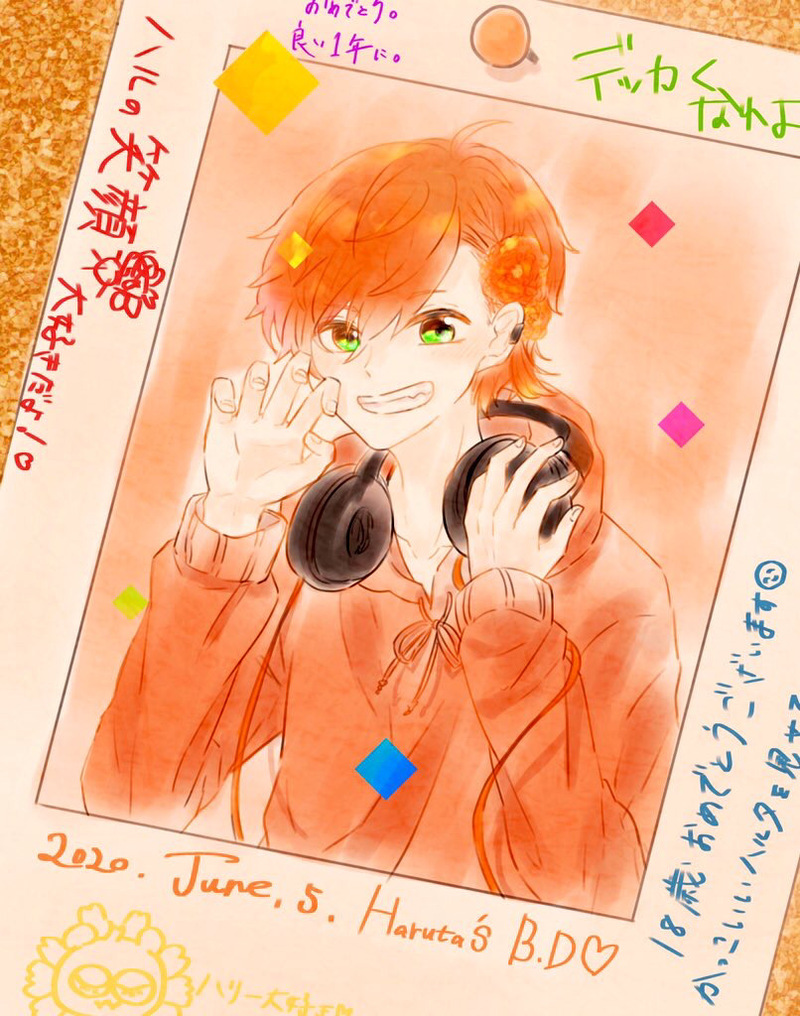 おめでとう。
良い1年に。
デッカく
なれよ
ハルの笑顔
大好きだよ！♡
18歳おめでとうございます☺
かっこいいハルタを見せて
2020. June. 5. Haruta's B.D♡
ハリー大好き